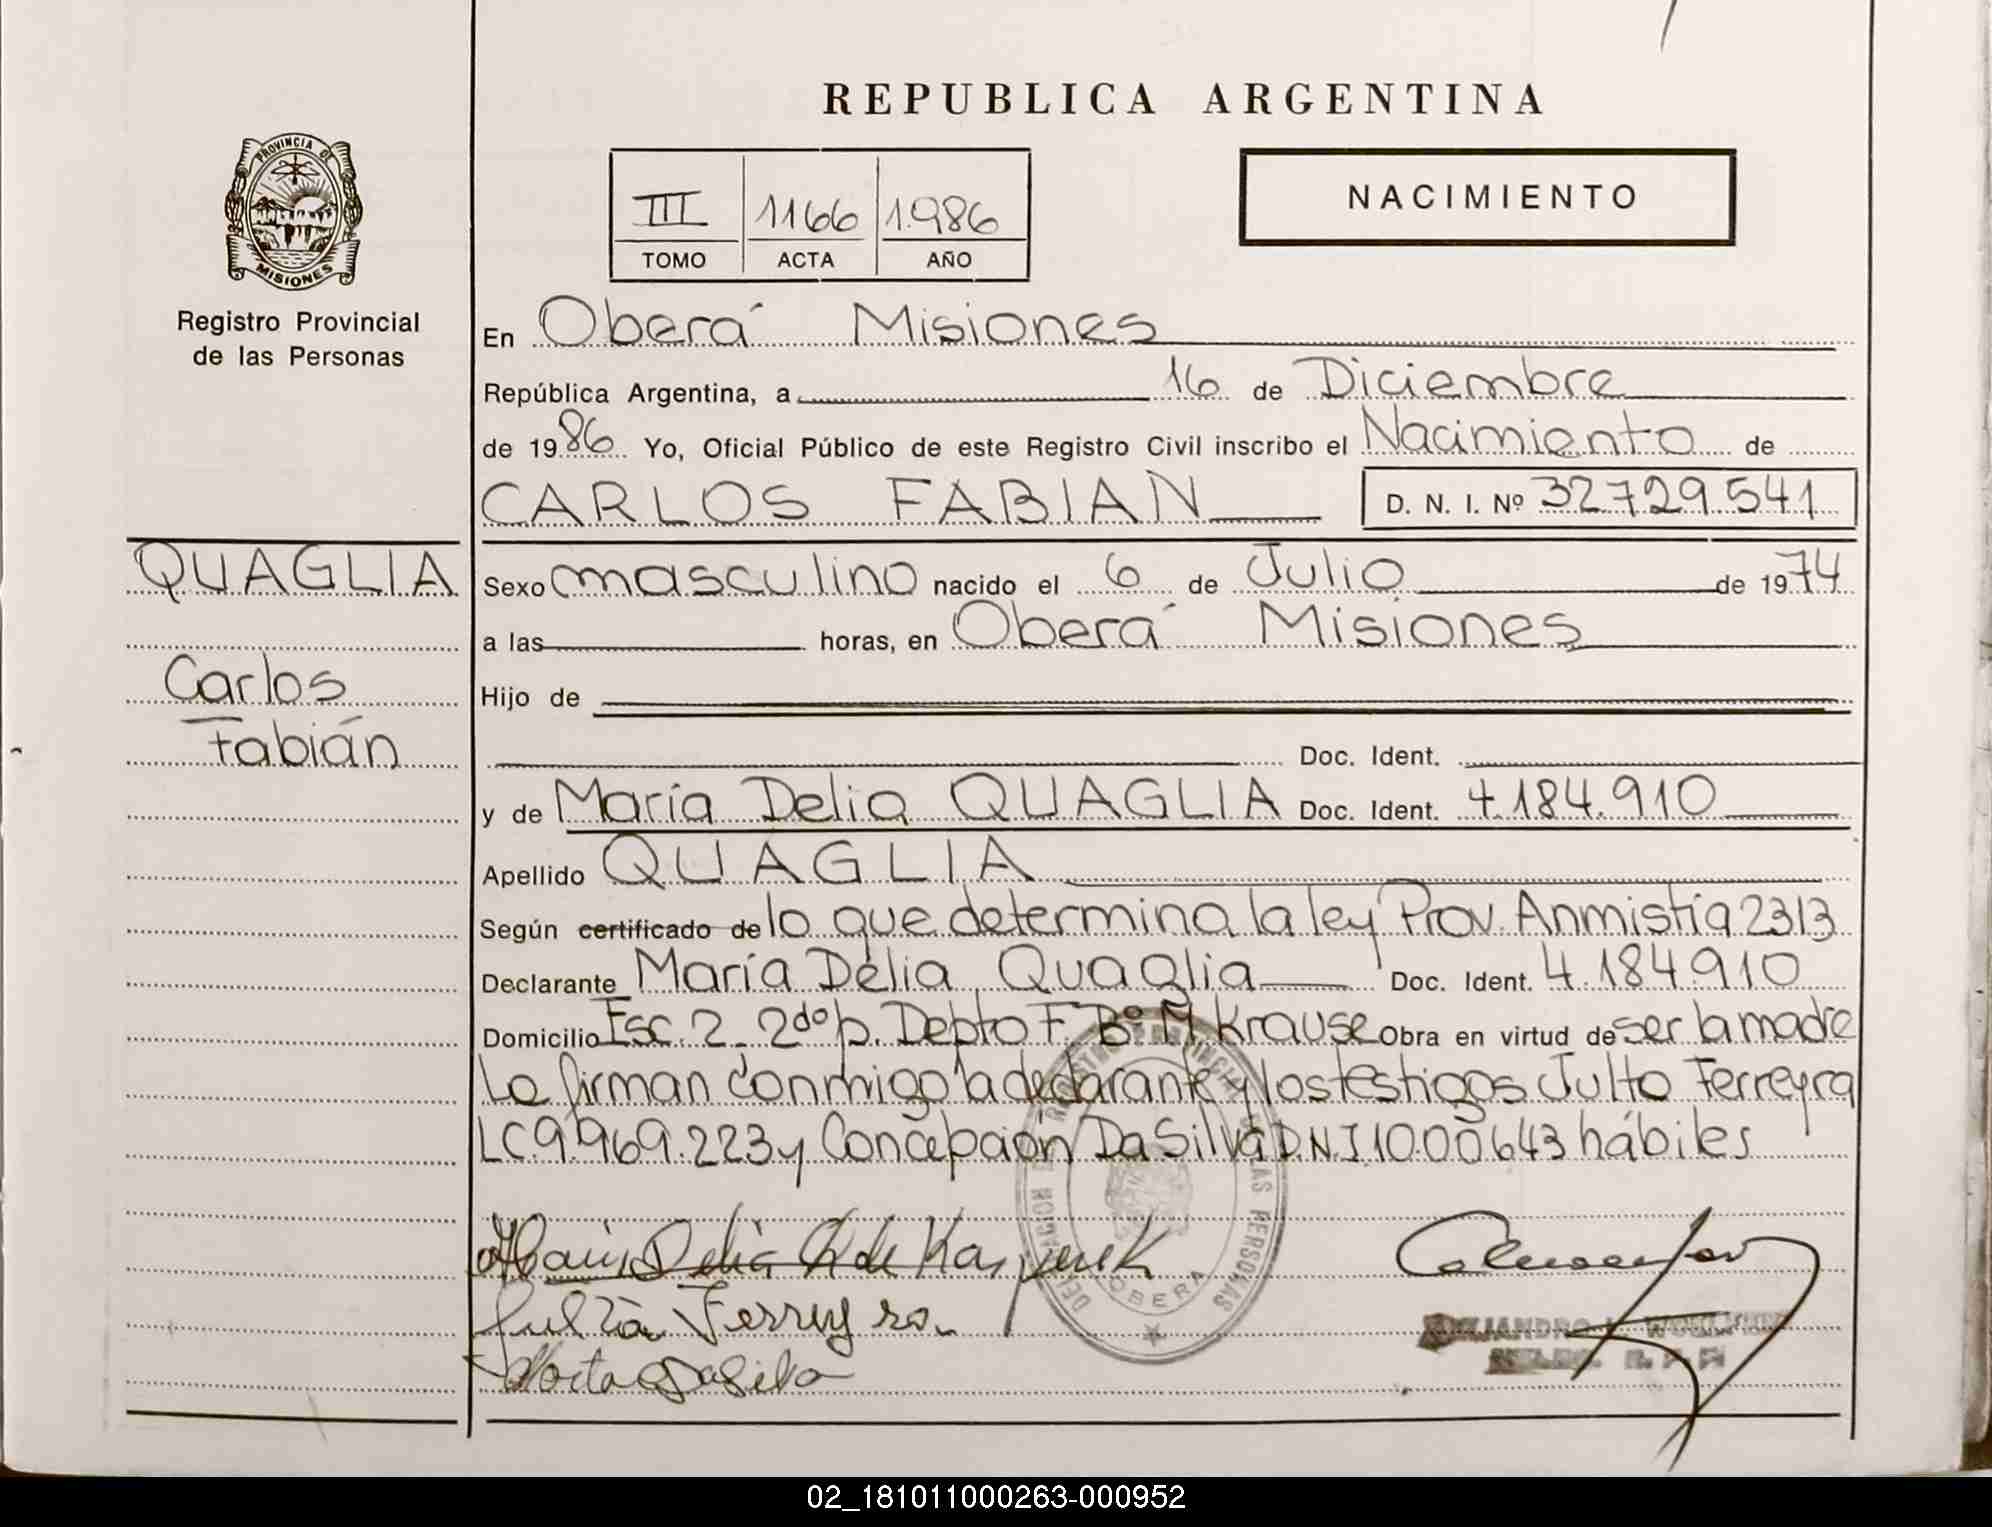 REPUBLICA ARGENTINA
PROVINCIA DE
MISIONES
Registro Provincial
de las Personas
III 1166 1.986
TOMO ACTA AÑO
NACIMIENTO
En Oberá Misiones
República Argentina, a 16 de Diciembre
de 1986 Yo, Oficial Público de este Registro Civil inscribo el Nacimiento de
CARLOS FABIAN D. N. I. Nº 32.729.541
QUAGLIA
Carlos
Fabián
Sexo masculino nacido el 6 de Julio de 1974
a las horas, en Oberá Misiones
Hijo de
Doc. Ident.
y de María Delia QUAGLIA Doc. Ident. 4.184.910
Apellido QUAGLIA
Según certificado de lo que determina la ley Prov. Anmistía 2313
Declarante María Delia Quaglia Doc. Ident. 4.184.910
Domicilio Esc. 2 - 2do p. Depto F. Bº M. Krause Obra en virtud de ser la madre
La firman conmigo la declarante y los testigos Julio Ferreyra
LC 9.969.223 y Concepción Da Silva D.N.I 10.000643 hábiles
María Delia Q. de
Ferreyra
REGISTRO PROVINCIAL DE LAS PERSONAS
OBERA
02_181011000263-000952